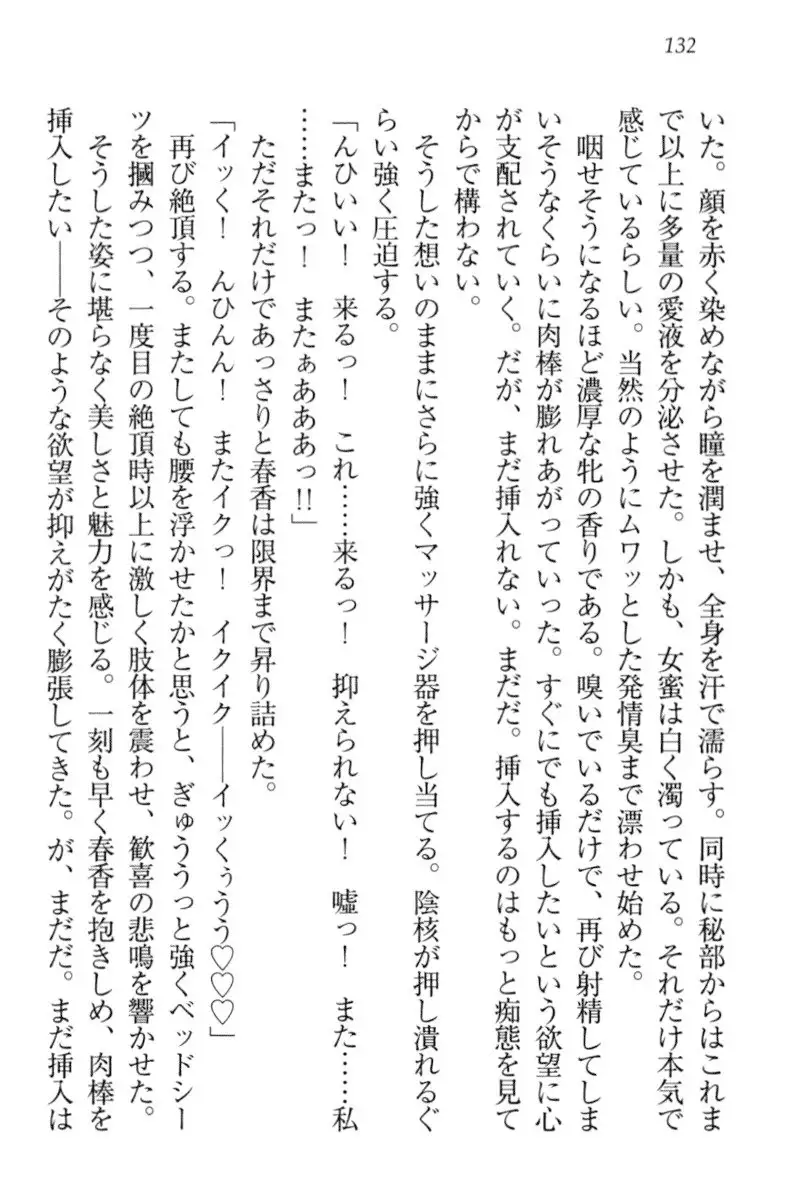 132
いた。顔を赤く染めながら瞳を潤ませ、全身を汗で濡らす。同時に秘部からはこれま
で以上に多量の愛液を分泌させた。しかも、女蜜は白く濁っている。それだけ本気で
感じているらしい。当然のようにムワッとした発情臭まで漂わせ始めた。
　咽せそうになるほど濃厚な牝の香りである。嗅いでいるだけで、再び射精してしま
いそうなくらいに肉棒が膨れあがっていった。すぐにでも挿入したいという欲望に心
が支配されていく。だが、まだ挿入れない。まだだ。挿入するのはもっと痴態を見て
からで構わない。
　そうした想いのままにさらに強くマッサージ器を押し当てる。陰核が押し潰れるぐ
らい強く圧迫する。
「んひいい！　来るっ！　これ……来るっ！　抑えられない！　嘘っ！　また……私
……またっ！　またぁあああっ!!」
　ただそれだけであっさりと春香は限界まで昇り詰めた。
「イッく！　んひんん！　またイクっ！　イクイク――イッくぅうう♡♡♡」
　再び絶頂する。またしても腰を浮かせたかと思うと、ぎゅううっと強くベッドシー
ツを摑みつつ、一度目の絶頂時以上に激しく肢体を震わせ、歓喜の悲鳴を響かせた。
　そうした姿に堪らなく美しさと魅力を感じる。一刻も早く春香を抱きしめ、肉棒を
挿入したい――そのような欲望が抑えがたく膨張してきた。が、まだだ。まだ挿入は